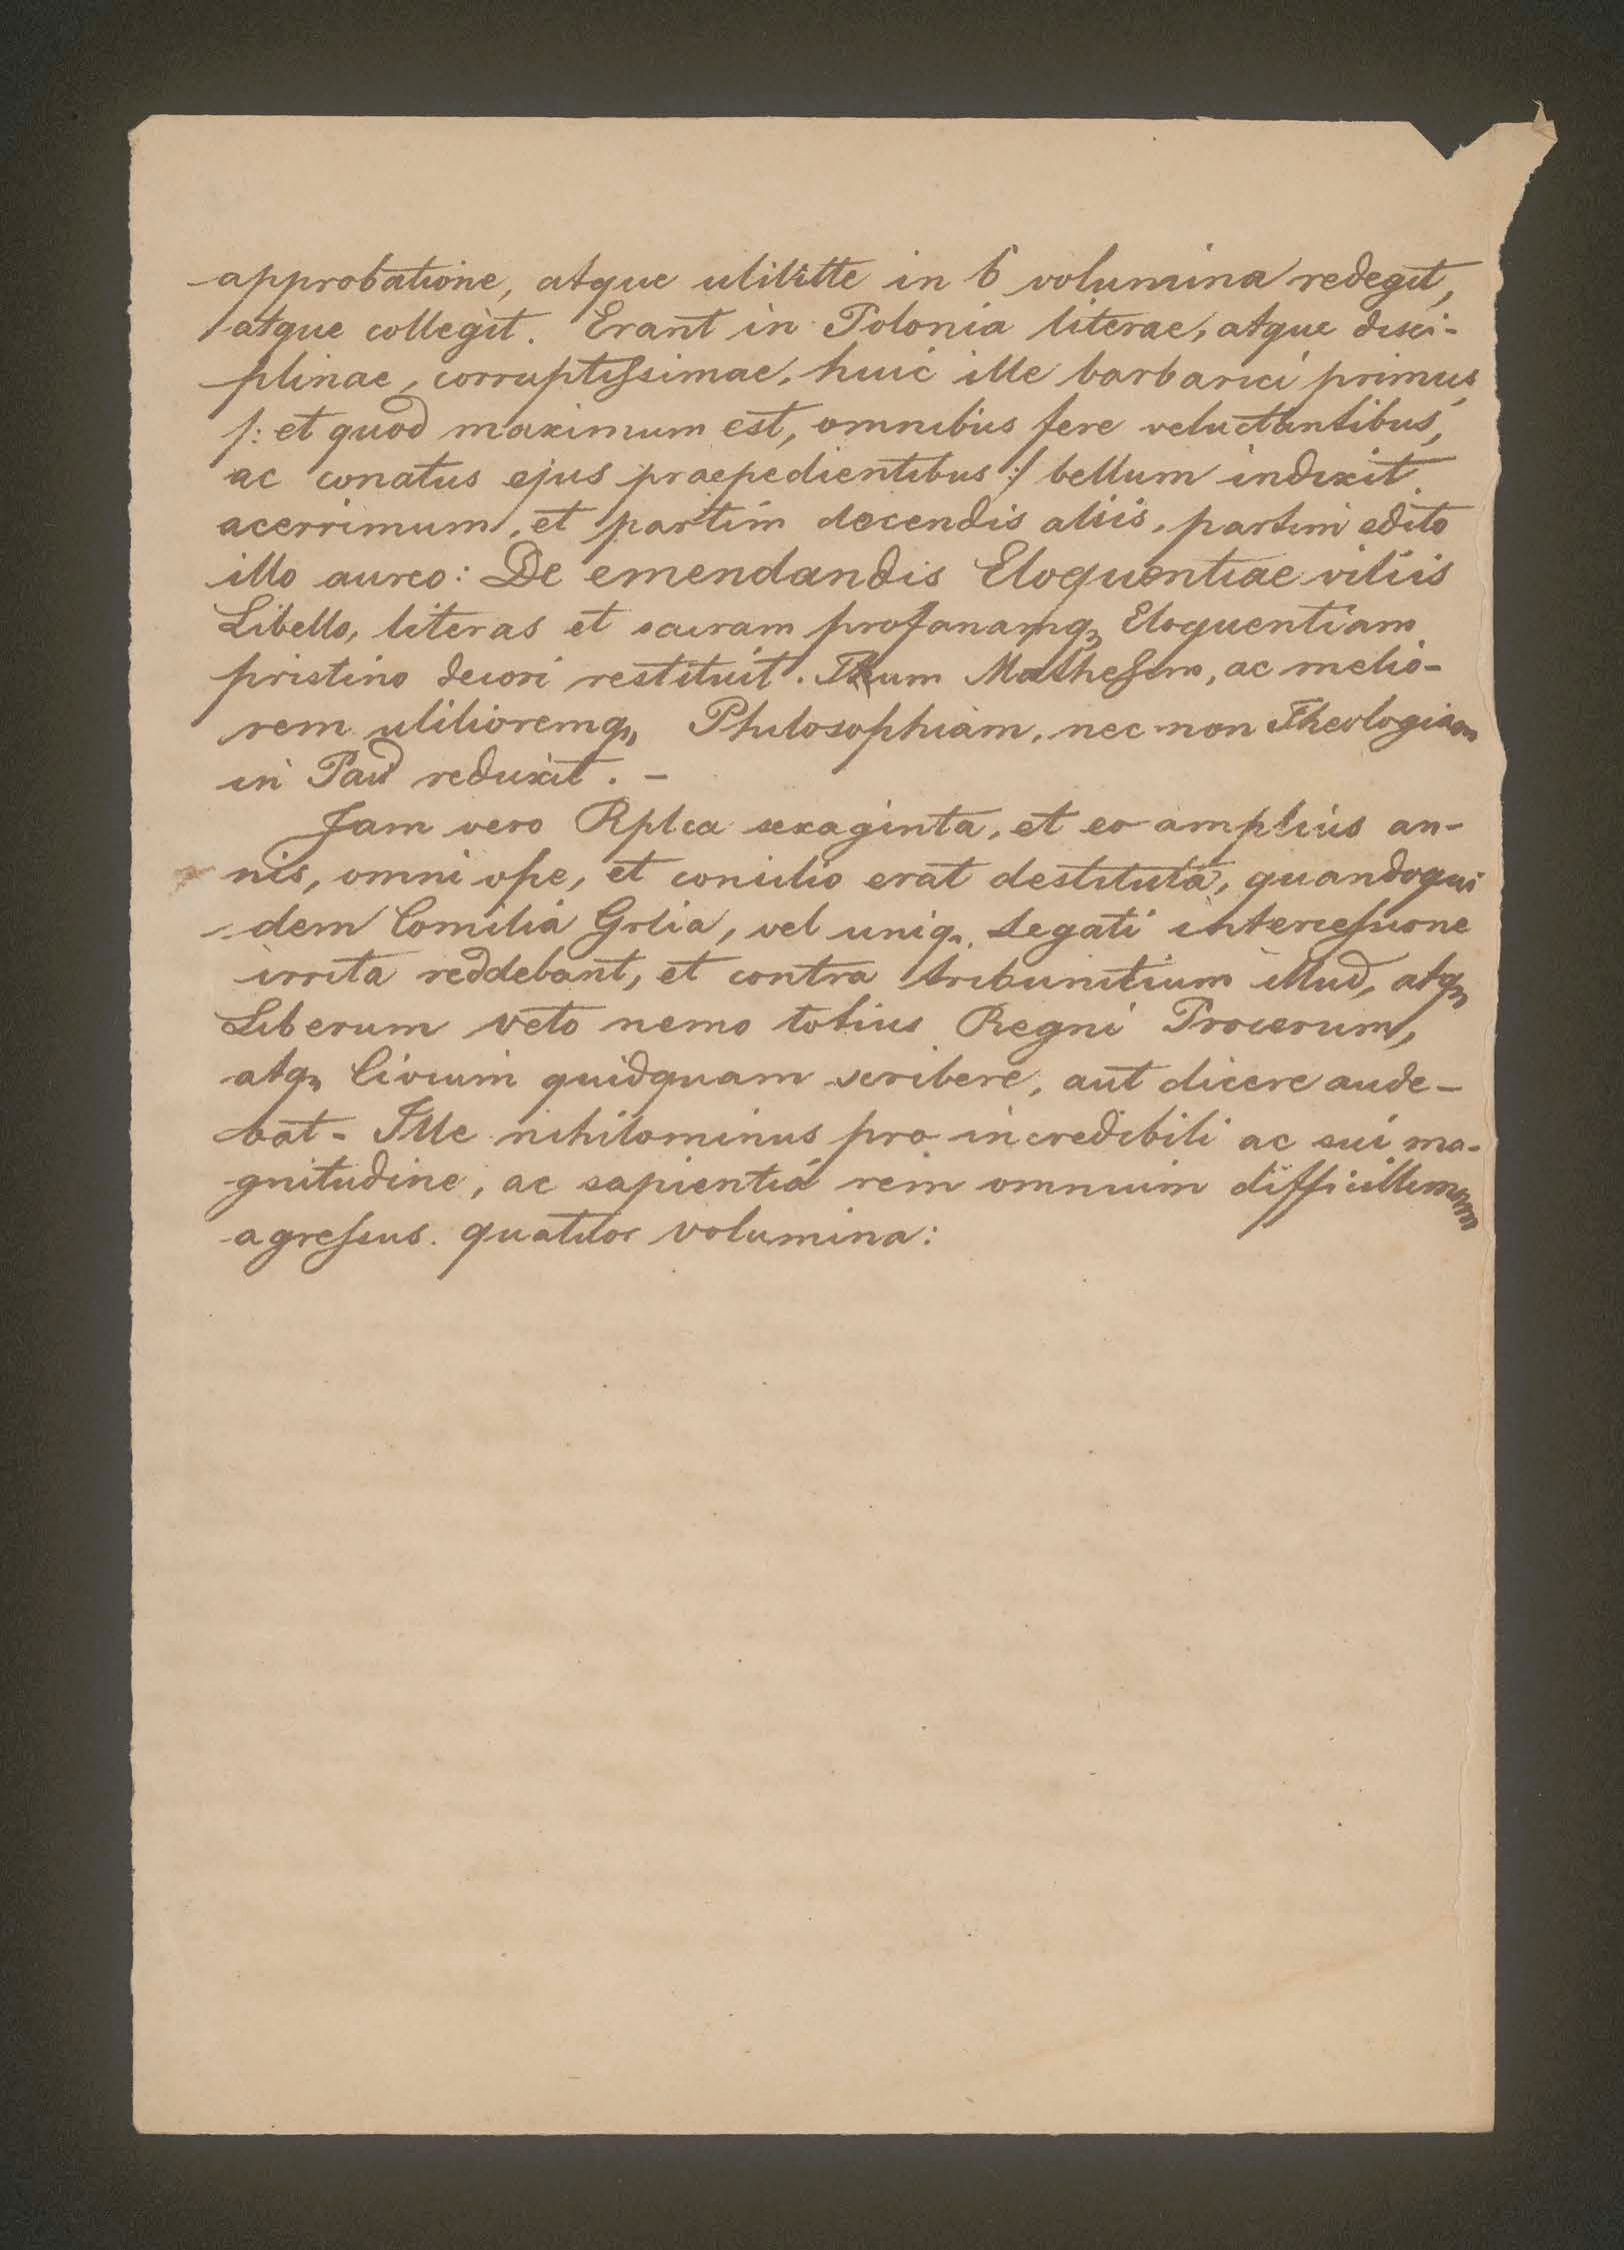 approbatione, atque utilitte in 6 volumina redegit,
atque collegit. Erant in Polonia literae, atque disci-
plinae, corruptissimae, huic ille barbarici primus,
/: et quod maximum est, omnibus fere reluctantibus,
ac conatus ejus praepedientibus :/ bellum indixit
acerrimum, et partim docendis aliis, partim edito
illo aureo: De emendandis Eloquentiae vitiis
Libello, literas et sacram profanamq, Eloquentiam
pristino decori restituit. Tum Mathesim, ac melio-
rem utilioremq, Philosophiam, nec non Theologiam
in reduxit. –
Jam vero Rplca sexaginta, et eo amplius an-
nis, omni ope, et consilio erat destituta, quandoqui
dem Comitia Grlia, vel uniq. Legati intercessione
irrita reddebant, et contra tribunitium illud, atq,
Liberum veto nemo totius Regni Procerum,
atq, Civium quidquam scribere, aut dicere aude-
bat. Ille nihilominus pro incredibili ac sui ma-
gnitudine, ac sapientiá rem omnium difficillimam
agressus. quatuor volumina: